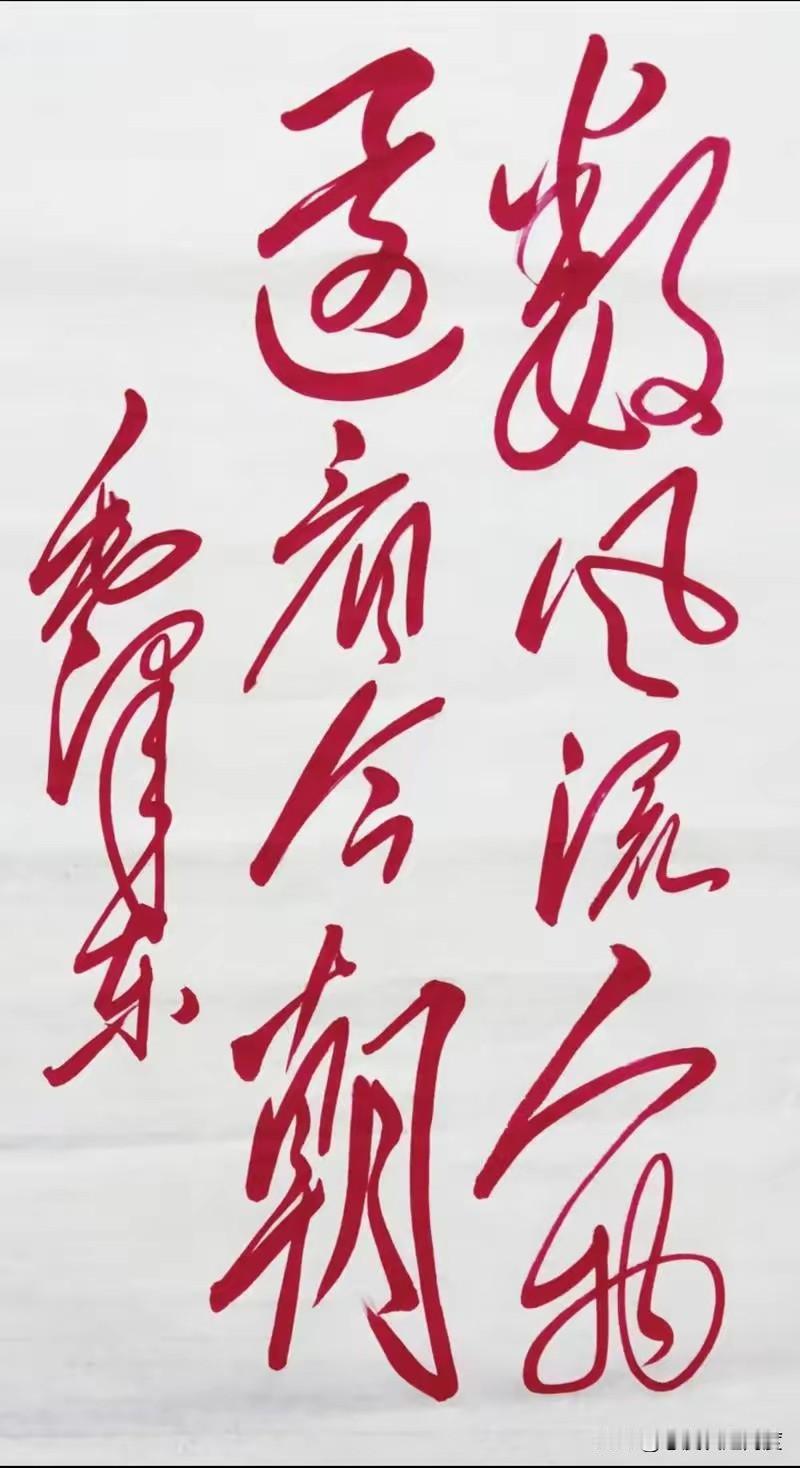 数风流人物
还看今朝
毛泽东